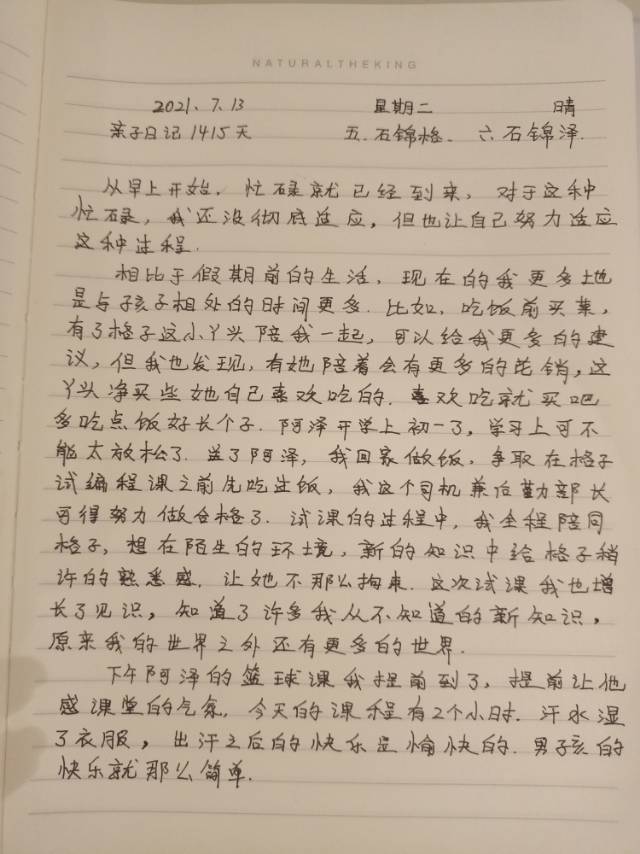 NATURALTHEKING
2021.7.13 星期二 晴
亲子日记1415天 五.石锦格. 六石锦泽.
从早上开始,忙碌就已经到来,对于这种
忙碌,我还没彻底适应,但也让自己努力适应
这种过程.
相比于假期前的生活,现在的我更多地
是与孩子相处的时间更多.比如,吃饭前买菜,
有了格子这小丫头陪我一起,可以给我更多的建
议,但我也发现,有她陪着会有更多的花销,这
丫头净买些她自己喜欢吃的.喜欢吃就买吧
多吃点饭好长个子.阿泽开学上初一了,学习上可不
能太放松了.送了阿泽,我回家做饭,争取在格子
试编程课之前先吃上饭,我这个司机兼后勤部长
可得努力做合格了.试课的过程中,我全程陪同
格子,想在陌生的环境,新的知识中给格子稍
许的熟悉感.让她不那么拘束.这次试课我也增
长了见识,知道了许多我从不知道的新知识,
原来我的世界之外还有更多的世界.
下午阿泽的篮球课我提前到了,提前让他
感课堂的气氛.今天的课程有2个小时.汗水湿
了衣服,出汗之后的快乐是愉快的.男子孩的
快乐就那么简单.